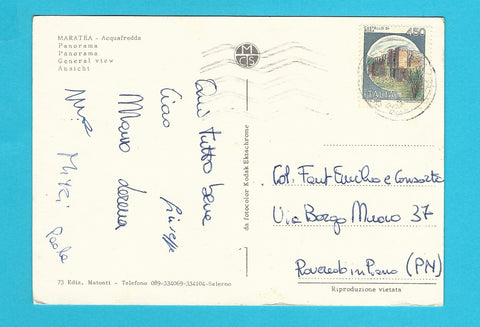 MARATEA - Acquafredda
Panorama
Panorama
General view
Ansicht
Tutto bene
Ciao Giuseppe
Marco Lorena
Mitzi Paola
73 Ediz. Matonti - Telefono 089-334069-334104-Salerno
da fotocolor Kodak Ektachrome
M
C S
450
ITALIA
Col. Fant Emilio e Consorte
Via Borgo Nuovo 37
Roveredo in Piano (PN)
Riproduzione vietata